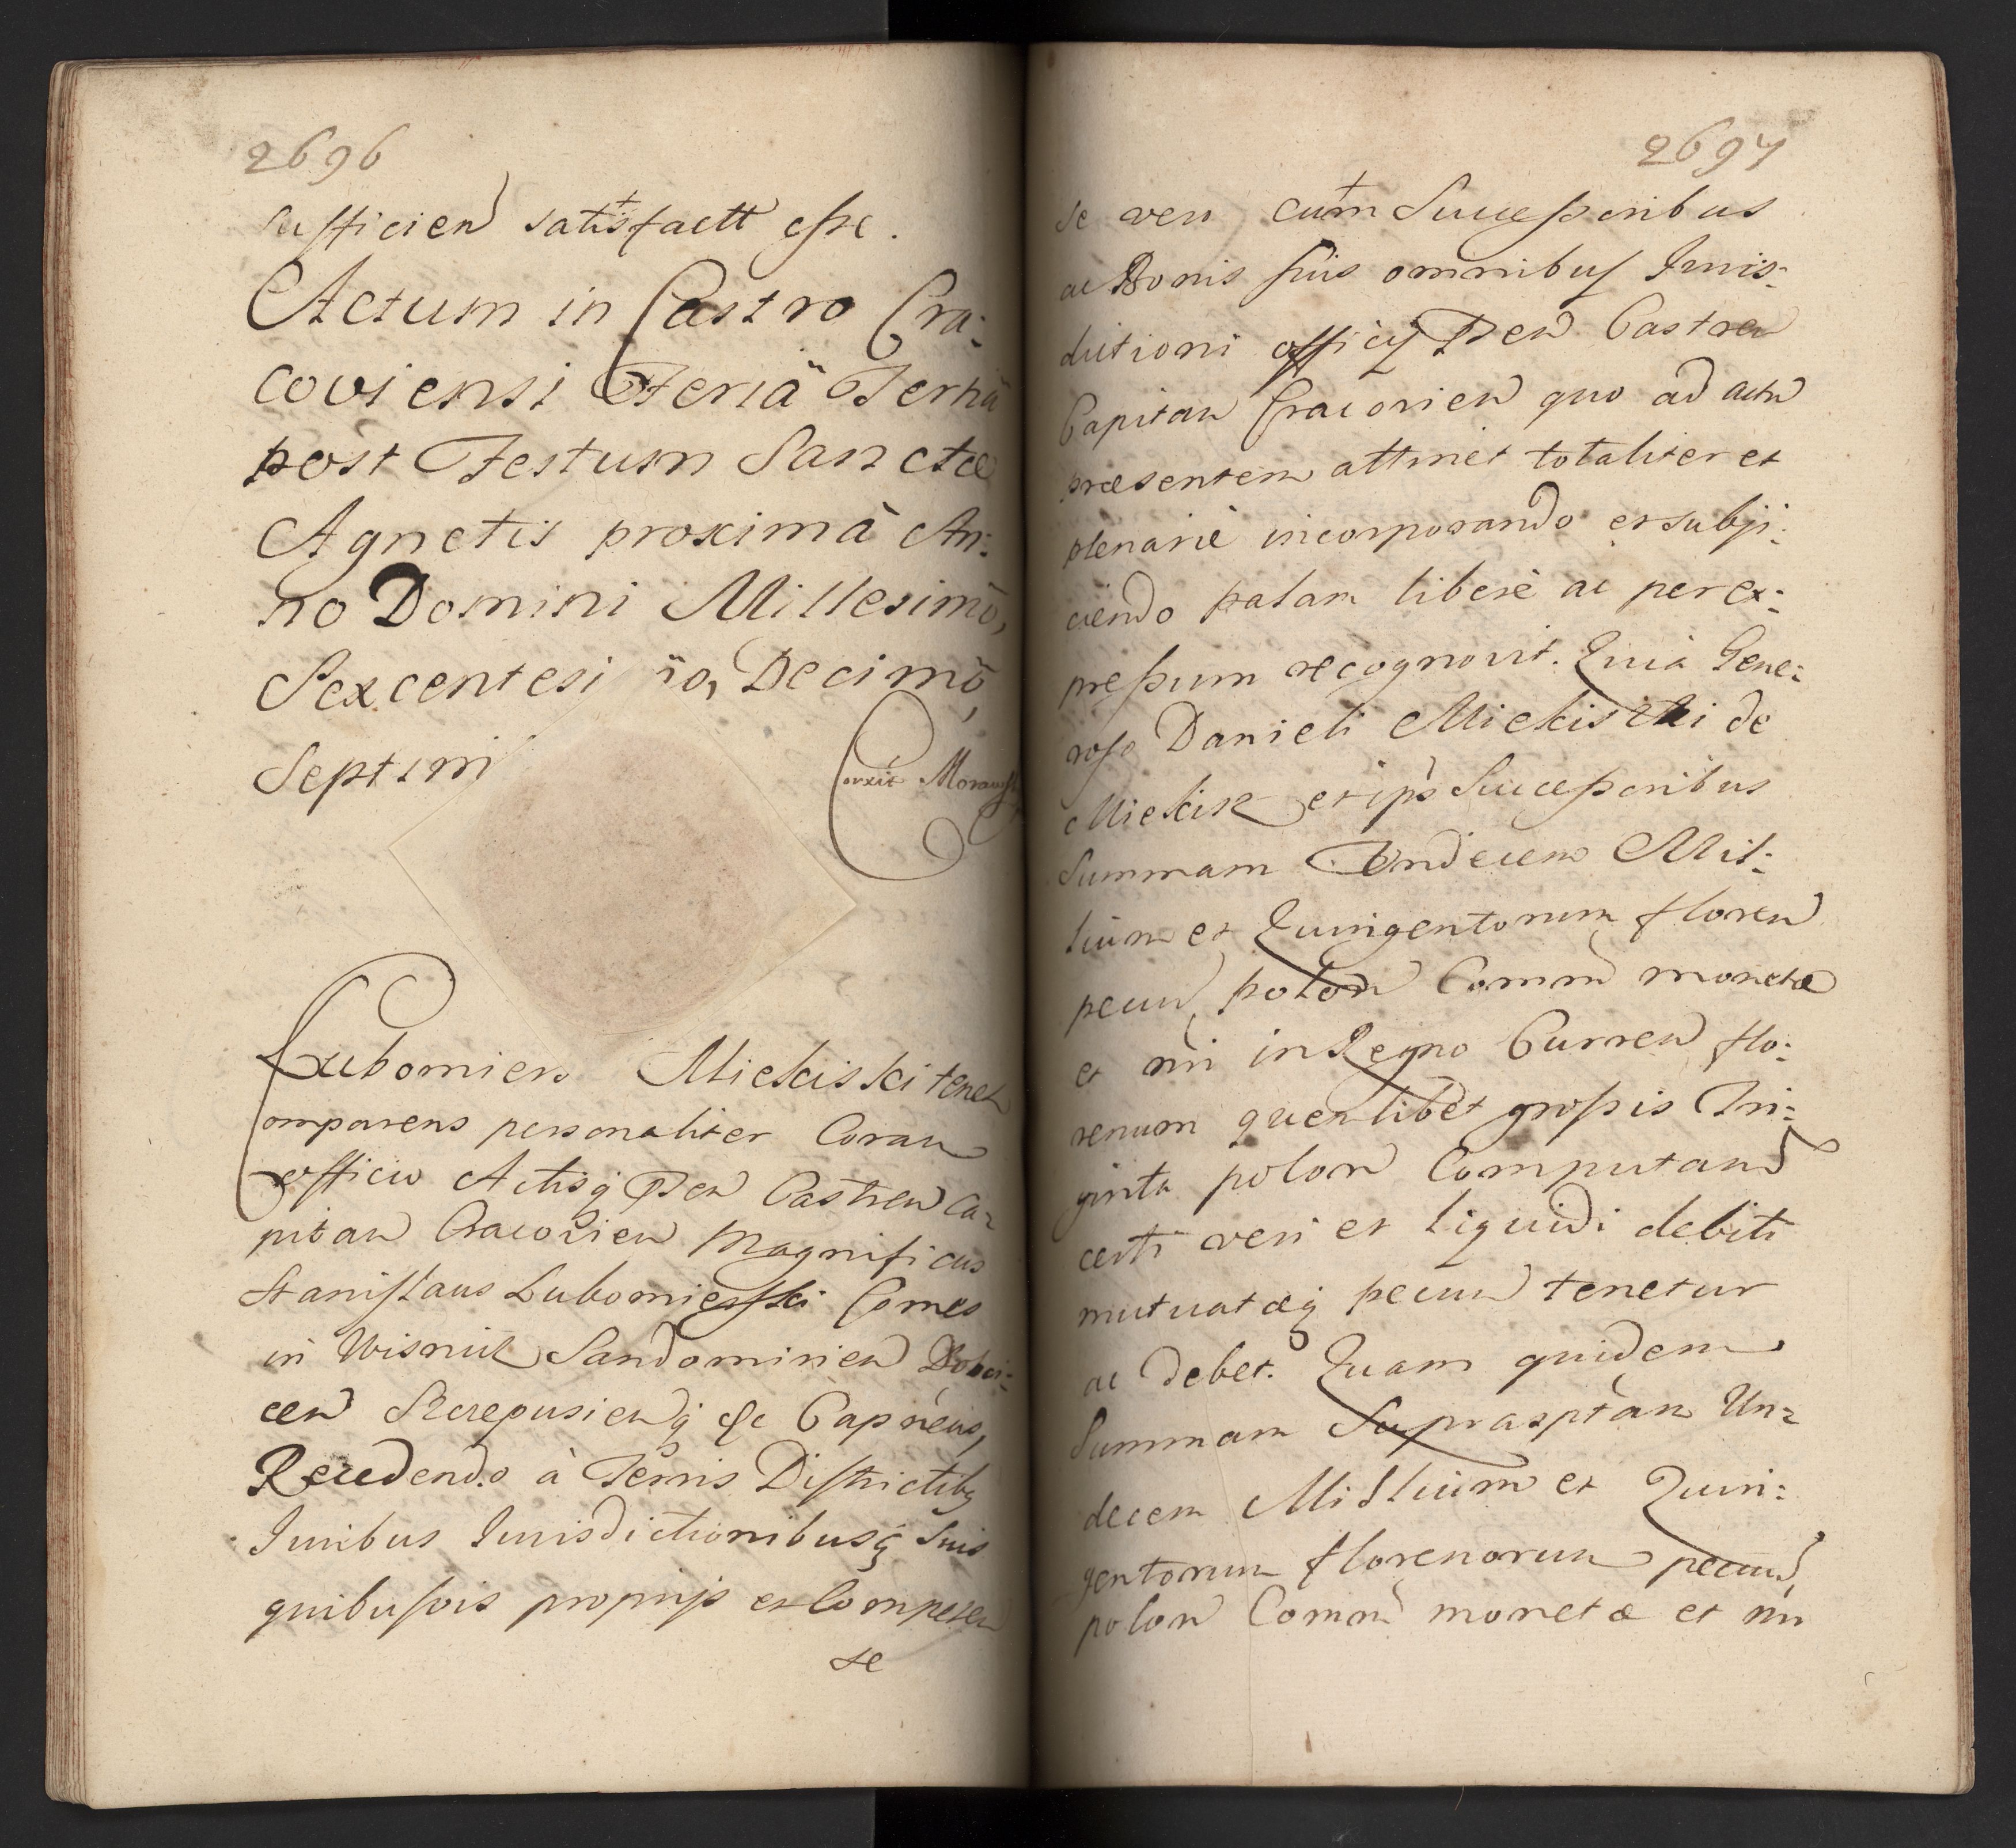 2696
sufficien satisfactt esse.
Actum in Castro Cra:
coviensi Feriä Tertiä
post Festum Sanctæ
Agnetis proximâ An:
no Domini Millesimō,
Sexcentesi ō, Decimō,
Septim
Corrxit
Lubomiers Miekiski tenet
Comparens personaliter Coram
officio Actisq Pten Castren Ca:
pitan Cracovien Magnificus
Stanislaus Lubomierski Comes
in Wisnicz Sandomirien Dobci:
cen Screpusienq &c Capneus,
Recedendo à Terris Districtibq
Juribus Jurisdictionibusq Suis
quibusvis proprijs et Competen
se
2697
se vero cum Successoribus
ac Bonis suis omnibus Juris:
dictioni officij Pten Castren
Capitan Cracovien quo ad actu
præsentem attinet totaliter et
plenariè incorporando et subji:
ciendo palam liberè ac per ex:
pressum recognovit. Quia Gene:
roso Danieli Miekiski de
Miekisz et ips Successoribus
Summam Undecem Mil:
lium et Quingentorum floren
pecun polon Comm monetæ
et nri in Regno Curren flo:
renum quenlibet grossis Tri:
ginta polon Computand
certi veri et liquidi debiti
mutuatæq pecun tenetur
ac debet. Quam quidem
Summam Suprasptàm Un:
decem Millium et Quin:
gentorum florenorum pecun,
polon Comm monetæ et nri